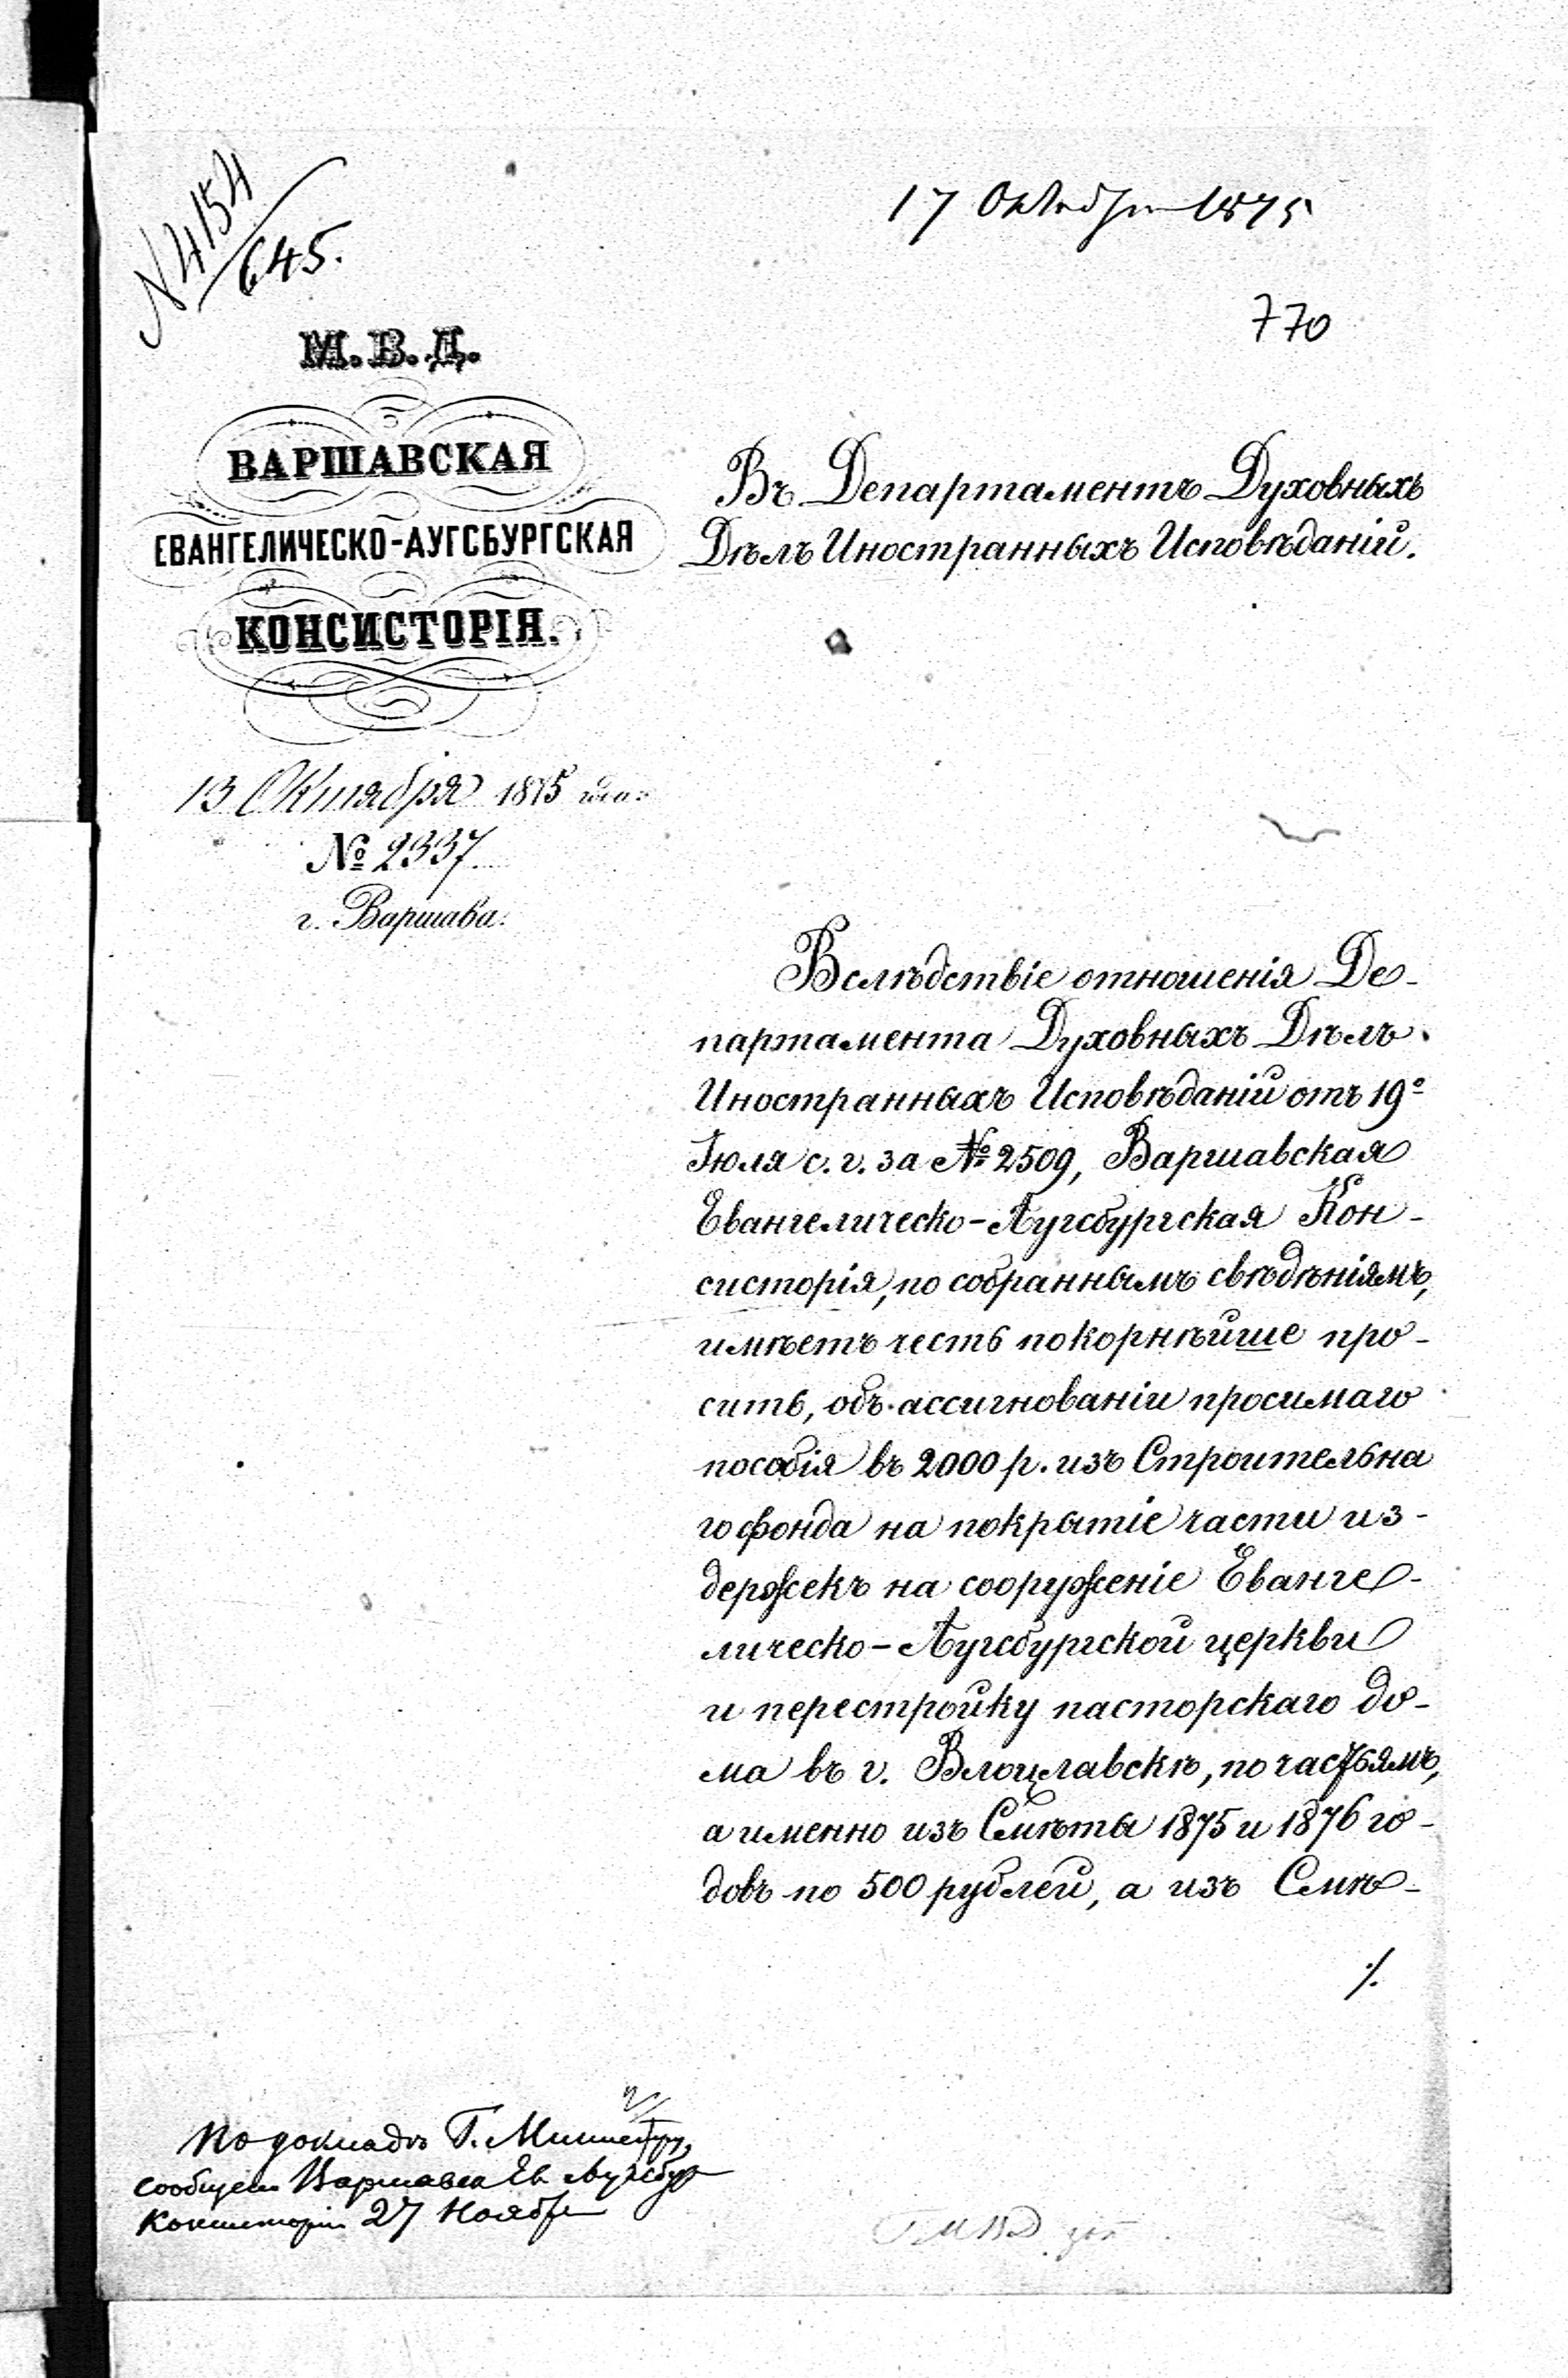 № 4154
645.
17 Октября 1875
770
М. В. Д.
ВАРШАВСКАЯ
ЕВАНГЕЛИЧЕСКО-АУГСБУРГСКАЯ
КОНСИСТОРІЯ.
13 Октября 1875 года.
№ 2337
г. Варшава.
Въ Департаментъ Духовныхъ
Дѣлъ Иностранныхъ Исповѣданій.
Вслѣдствіе отношенія Де-
партамента Духовныхъ Дѣлъ
Иностранныхъ Исповѣданій отъ 19º
Іюля с. г. за № 2509, Варшавская
Евангелическо-Аугсбургская Кон-
систорія, по собраннымъ свѣдѣніямъ,
имѣетъ честь покорнѣйше про-
сить, объ ассигнованіи просимаго
пособія въ 2000 р. изъ Строительна
го фонда на покрытіе части из-
держекъ на сооруженіе Еванге-
лическо-Аугсбургской церкви
и перестройку пасторскаго до-
ма въ г. Влоцлавскѣ, по частямъ,
а именно изъ Смѣты 1875 и 1876 го-
довъ по 500 рублей, а изъ Смѣ-
./.
По докладѣ Г. Министру,
сообщено Варшавск Ев Аугсбур
Консисторіи 27 Ноября